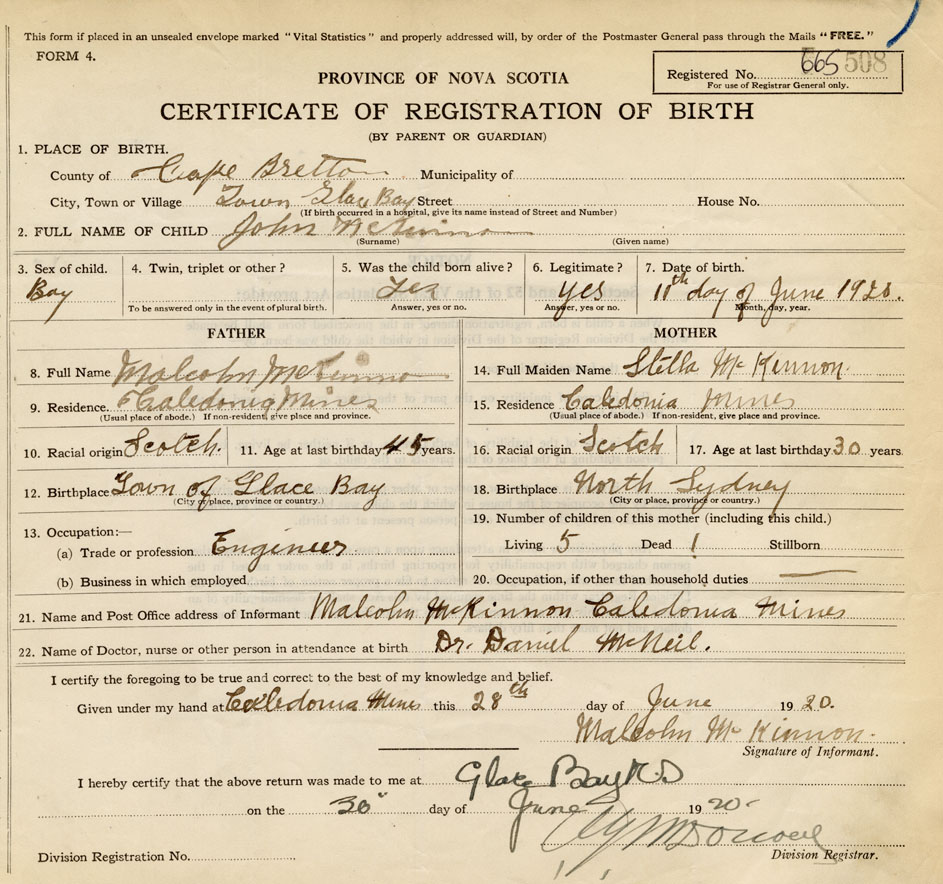 This form if placed in an unsealed envelope marked "Vital Statistics" and properly addressed will, by order of the Postmaster General pass through the Mails "FREE."
FORM 4.
PROVINCE OF NOVA SCOTIA
Registered No. 665 508
For use of Registrar General only.
CERTIFICATE OF REGISTRATION OF BIRTH
(BY PARENT OR GUARDIAN)
1. PLACE OF BIRTH.
County of Cape Bretton Municipality of
City, Town or Village Town Glace Bay Street House No.
(If birth occurred in a hospital, give its name instead of Street and Number)
2. FULL NAME OF CHILD John McKinnon
(Surname) (Given name)
3. Sex of child. 4. Twin, triplet or other? 5. Was the child born alive? 6. Legitimate? 7. Date of birth.
Boy Yes yes 11th day of June 1920.
To be answered only in the event of plural birth. Answer, yes or no. Answer, yes or no. Month, day, year.
FATHER MOTHER
8. Full Name Malcolm McKinnon 14. Full Maiden Name Stella McKinnon.
9. Residence. Caledonia Mines 15. Residence Caledonia Mines
(Usual place of abode.) If non-resident, give place and province. (Usual place of abode.) If non-resident, give place and province.
10. Racial origin Scotch. 11. Age at last birthday 45 years. 16. Racial origin Scotch 17. Age at last birthday 30 years
12. Birthplace Town of Glace Bay 18. Birthplace North Sydney
(City or place, province or country.) (City or place, province or country.)
13. Occupation:— 19. Number of children of this mother (including this child.)
(a) Trade or profession Engineer Living 5 Dead 1 Stillborn
(b) Business in which employed 20. Occupation, if other than household duties —
21. Name and Post Office address of Informant Malcolm McKinnon Caledonia Mines
22. Name of Doctor, nurse or other person in attendance at birth Dr. Daniel McNeil.
I certify the foregoing to be true and correct to the best of my knowledge and belief.
Given under my hand at Caledonia Mines this 28th day of June 19 20.
Malcolm McKinnon.
Signature of Informant.
I hereby certify that the above return was made to me at Glace Bay N S
on the 30" day of June 19 20
Division Registration No. Division Registrar.